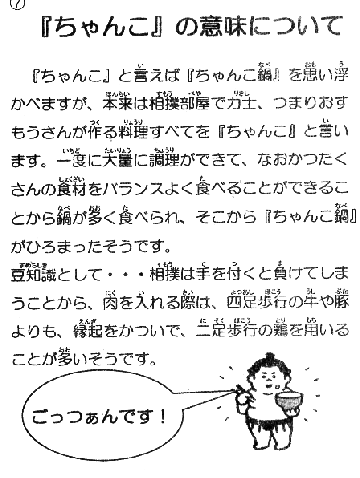 ⑦
『ちゃんこ』の意味について
『ちゃんこ』と言えば『ちゃんこ鍋』を思い浮
かべますが、本来は相撲部屋で力士、つまりおす
もうさんが作る料理すべてを『ちゃんこ』と言い
ます。一度に大量に調理ができて、なおかつたく
さんの食材をバランスよく食べることができるこ
とから鍋が多く食べられ、そこから『ちゃんこ鍋』
がひろまったそうです。
豆知識として・・・相撲は手を付くと負けてしま
うことから、肉を入れる際は、四足歩行の牛や豚
よりも、縁起をかついで、二足歩行の鶏を用いる
ことが多いそうです。
ごっつぁんです！